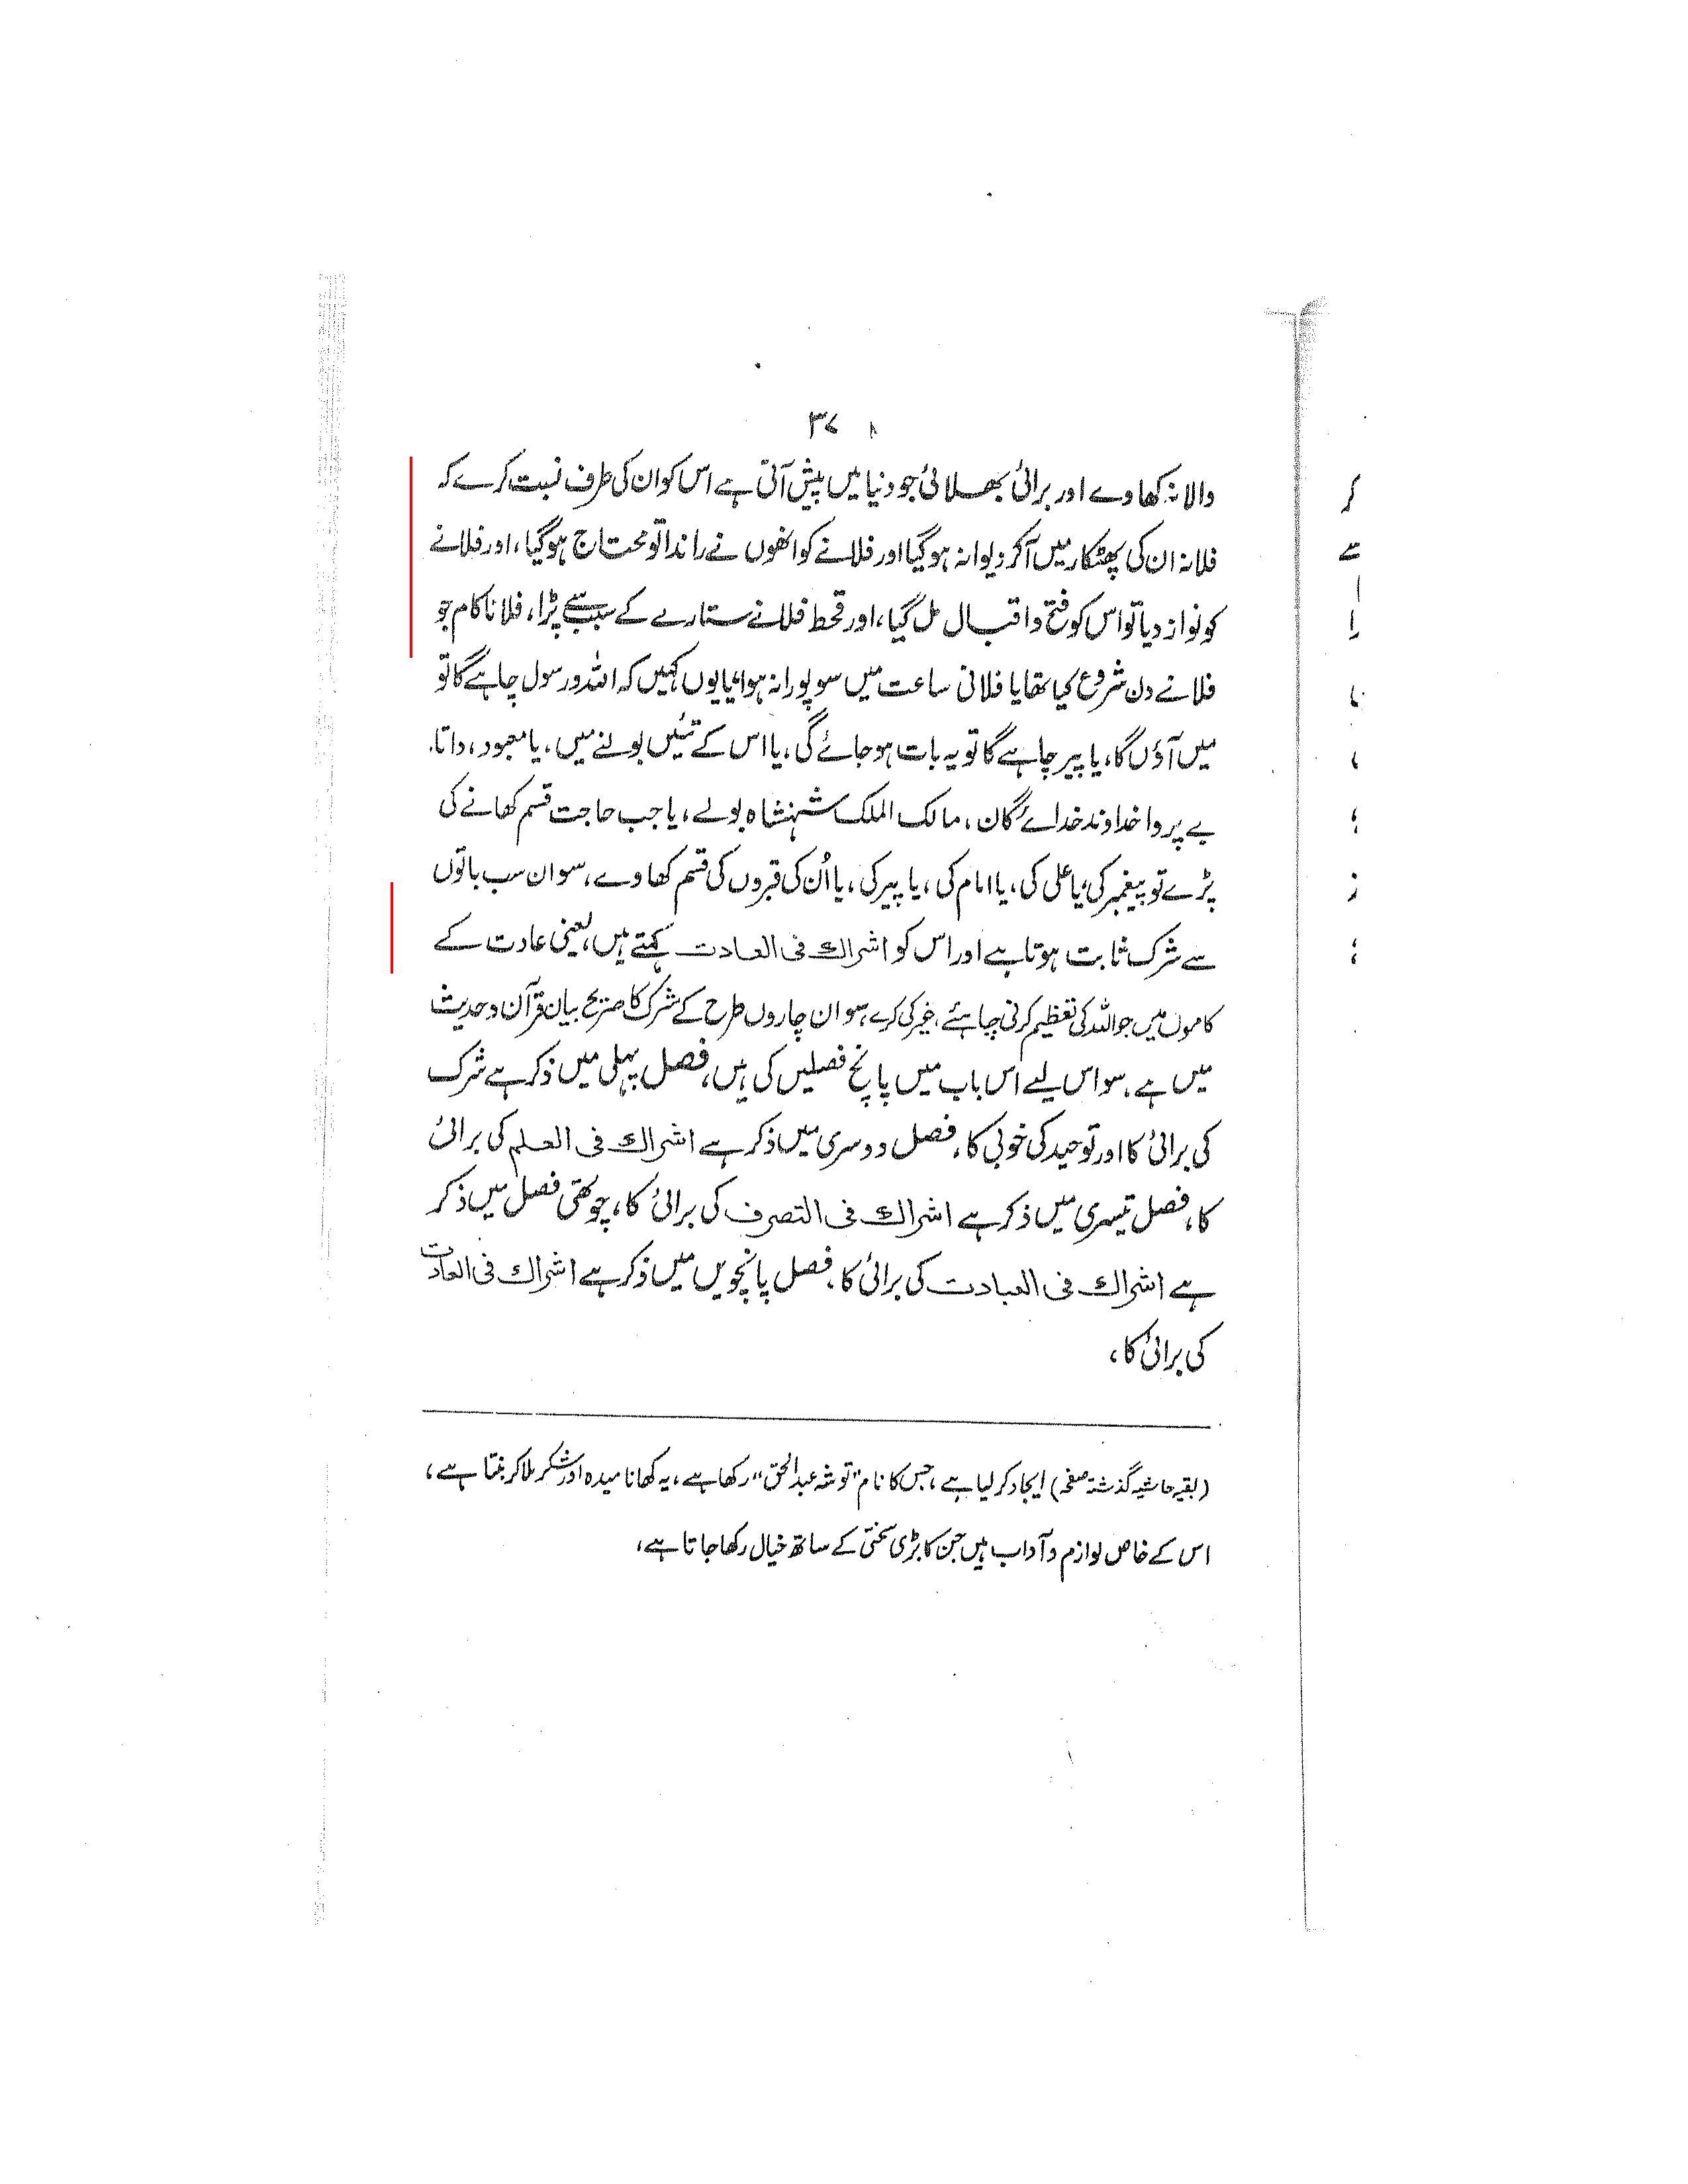 ۳۷
والا نہ کھاوے اور برائی بھلائی جو دنیا میں پیش آتی ہے اس کو ان کی طرف نسبت کرے کہ
فلانہ ان کی پھٹکار میں آکر دیوانہ ہوگیا اور فلانے کو انھوں نے راندا تو محتاج ہوگیا، اور فلانے
کو نواز دیا تو اس کو فتح و اقبال مل گیا، اور قحط فلانے ستارے کے سبب سے پڑا، فلانا کام جو
فلانے دن شروع کیا تھا یا فلانی ساعت میں سو پورا نہ ہوا، یا یوں کہیں کہ اللہ و رسول چاہے گا تو
میں آؤں گا، یا پیر چاہے گا تو یہ بات ہو جائے گی، یا اس کے تئیں بولنے میں، یا معبود، داتا،
بے پروا خداوند خدائے گان، مالک الملک شہنشاہ بولے، یا جب حاجت قسم کھانے کی
پڑے تو پیغمبر کی، یا علی کی، یا امام کی، یا پیر کی، یا اُن کی قبروں کی قسم کھاوے، سو ان سب باتوں
سے شرک ثابت ہوتا ہے اور اس کو اشراك فی العادت کہتے ہیں، یعنی عادت کے
کاموں میں جو اللہ کی تعظیم کرنی چاہئے، غیر کی کرے، سو ان چاروں طرح کے شرک کا صریح بیان قرآن و حدیث
میں ہے، سو اس لیے اس باب میں پانچ فصلیں کی ہیں، فصل پہلی میں ذکر ہے شرک
کی برائی کا اور توحید کی خوبی کا، فصل دوسری میں ذکر ہے اشراك فی العلم کی برائی
کا، فصل تیسری میں ذکر ہے اشراك فی التصرف کی برائی کا، چوتھی فصل میں ذکر
ہے اشراك فی العبادت کی برائی کا، فصل پانچویں میں ذکر ہے اشراك فی العادت
کی برائی کا،
(بقیہ حاشیہ گذشتہ صفحہ) ایجاد کر لیا ہے، جس کا نام "توشہ عبد الحق" رکھا ہے، یہ کھانا میدہ اور شکر ملا کر بنتا ہے،
اس کے خاص لوازم و آداب ہیں جن کا بڑی سختی کے ساتھ خیال رکھا جاتا ہے،